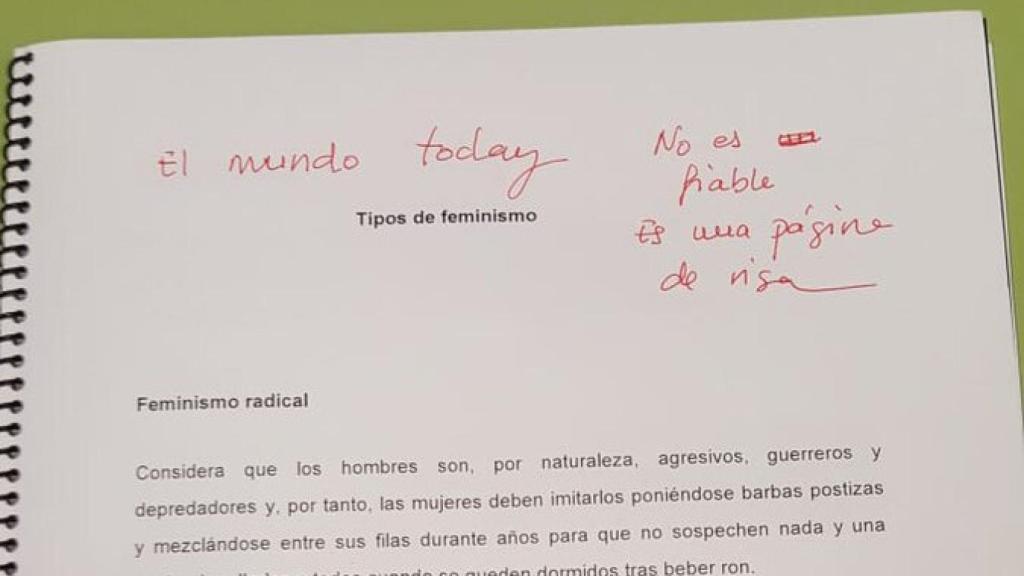 El mundo today
No es
fiable
Es una página
de risa
Tipos de feminismo
Feminismo radical
Considera que los hombres son, por naturaleza, agresivos, guerreros y
depredadores y, por tanto, las mujeres deben imitarlos poniéndose barbas postizas
y mezclándose entre sus filas durante años para que no sospechen nada y una
cuando se queden dormidos tras beber ron.